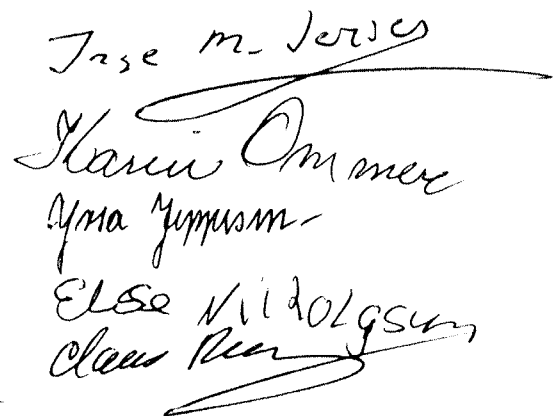 Inge M. Jensen
Karin Ommer
Yrsa Jeppesen
Else Nikolajsen
Claus